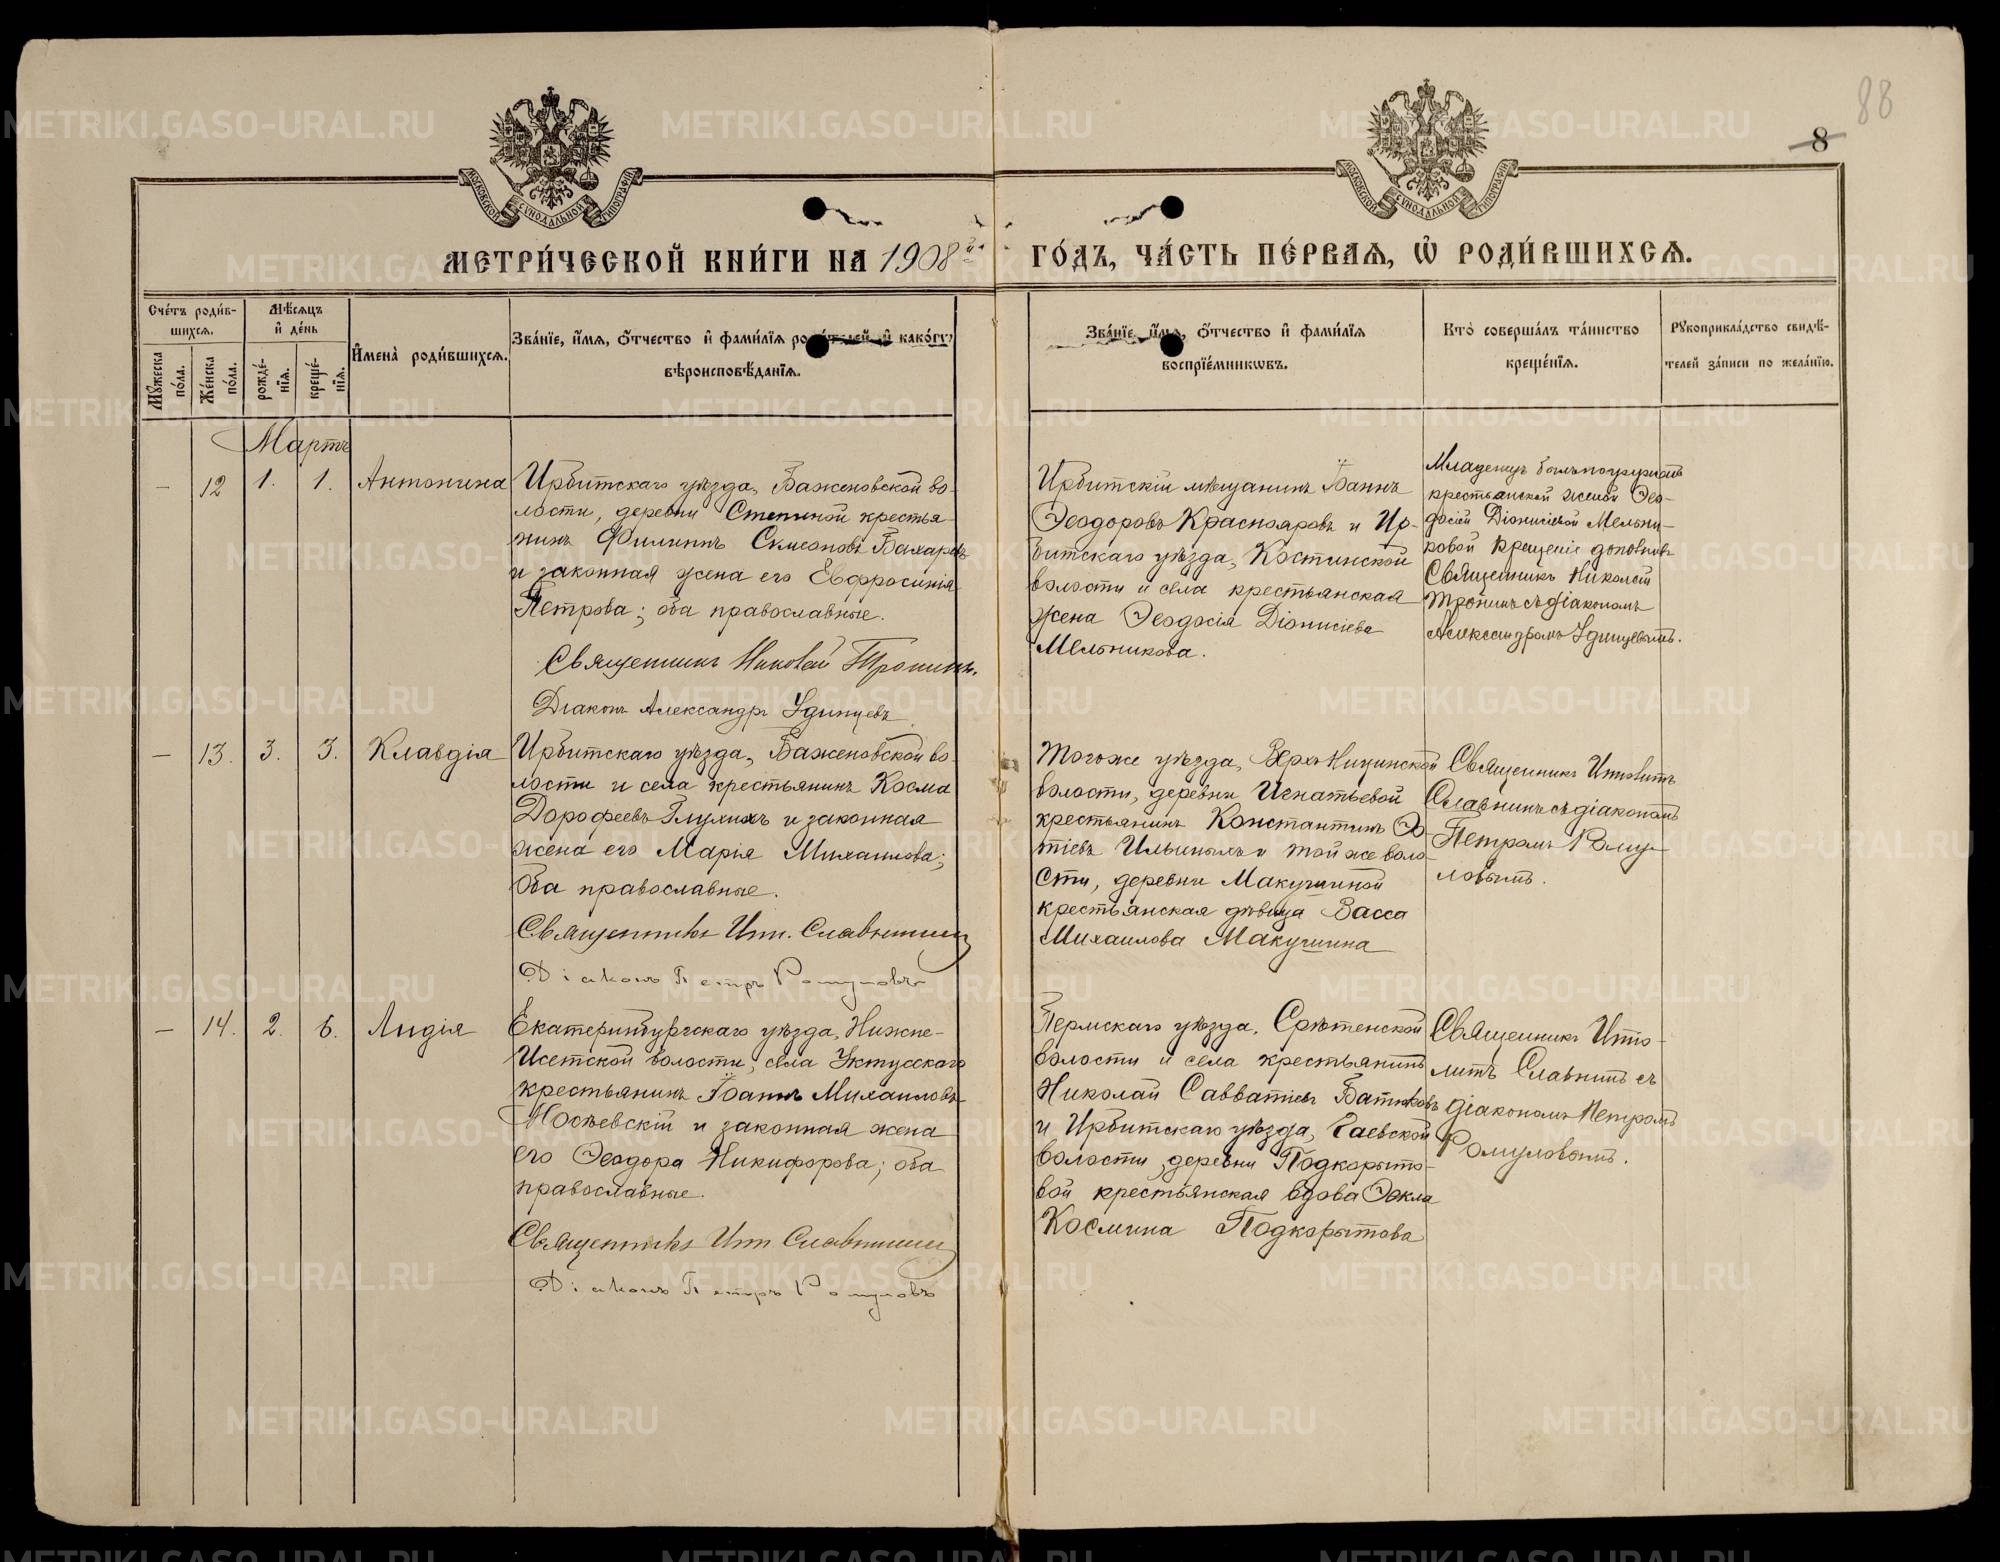 88
8
МОСКОВСКОЙ СУНОДАЛЬНОЙ ТИПОГРАФІИ
МОСКОВСКОЙ СУНОДАЛЬНОЙ ТИПОГРАФІИ
МЕТРИ́ЧЕСКОЙ КНИ́ГИ НА 1908й
ГО́ДЪ, ЧА́СТЬ ПЕ́РВАѦ, Ѽ РОДИ́ВШИХСѦ.
Сче́тъ роди́в-
шихсѧ.
Мѣ́сѧцъ
и҆ де́нь
Мꙋжеска по́ла.
Же́нска по́ла.
рожде́-
нїѧ.
креще́-
нїѧ.
И҆мена̀ роди́вшихсѧ.
Зва́нїе, и҆́мѧ, ѻ҆́тчество и҆ фами́лїѧ роди́телей, и҆ како́гѡ
вѣроисповѣ́данїѧ.
Зва́нїе, и҆́мѧ, ѻ҆́тчество и҆ фами́лїѧ
воспрїе́мникѡвъ.
Кто̀ соверша́лъ та́инство
креще́нїѧ.
Рꙋкоприкла́дство свидѣ́-
телей за́писи по жела́нїю.
Мартъ
— 12 1. 1. Антонина
Ирбитскаго уѣзда, Баженовской во-
лости, деревни Степиной крестья-
нинъ Филиппъ Симеоновъ Бахаревъ
и законная жена его Евфросинія
Петрова; оба православные.
Священникъ Николай Тропинъ.
Діаконъ Александръ Удинцевъ.
Ирбитскій мѣщанинъ Іоаннъ
Ѳеодоровъ Краснояровъ и Ир-
битскаго уѣзда, Костинской
волости и села крестьянская
жена Ѳеодосія Діонисіева
Мельникова.
Младенецъ былъ погруженъ
крестьянской женой Ѳео-
досіей Діонисіевой Мельни-
ковой Крещеніе дополнилъ
Священникъ Николай
Тропинъ съ діакономъ
Александромъ Удинцевымъ.
— 13. 3. 3. Клавдія
Ирбитскаго уѣзда, Баженовской во-
лости и села крестьянинъ Косма
Дорофеевъ Глухихъ и законная
жена его Марія Михаилова;
оба православные.
Священникъ Ипп. Славнинъ
Діаконъ Петръ Ромуловъ
Тогоже уѣзда, Верх-Ницинской
волости, деревни Игнатьевой
крестьянинъ Константинъ Ѳо-
тіевъ Ильиныхъ и той же воло-
сти, деревни Макушиной
крестьянская дѣвица Васса
Михаилова Макушина
Священникъ Ипполитъ
Славнинъ съ діакономъ
Петромъ Рому-
ловымъ.
— 14. 2. 6. Лидія
Екатеринбургскаго уѣзда, Нижне-
Исетской волости, села Уктусскаго
крестьянинъ Іоаннъ Михаиловъ
Мосѣевскій и законная жена
его Ѳеодора Никифорова; оба
православные.
Священникъ Ипп Славнинъ
Діаконъ Петръ Ромуловъ
Пермскаго уѣзда, Срѣтенской
волости и села крестьянинъ
Николай Савватіевъ Батиковъ
и Ирбитскаго уѣзда, Гаевской
волости, деревни Подкорыто-
вой крестьянская вдова Ѳекла
Космина Подкорытова
Священникъ Иппо-
литъ Славнинъ съ
діакономъ Петромъ
Ромуловымъ.
METRIKI.GASO-URAL.RU